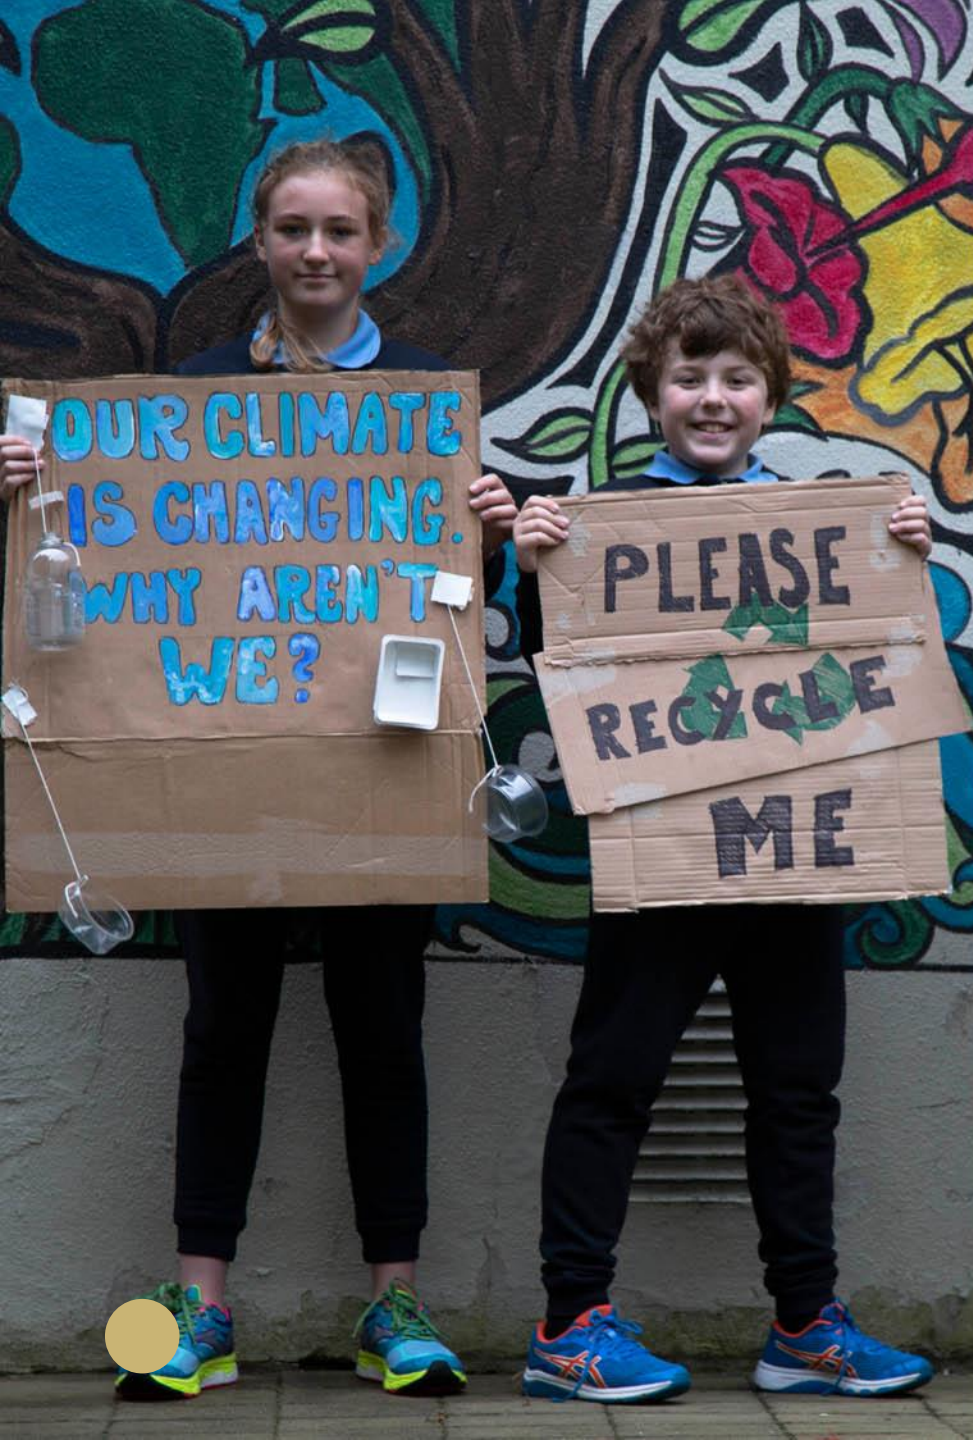 OUR CLIMATE
IS CHANGING.
WHY AREN'T
WE?
PLEASE
RECYCLE
ME